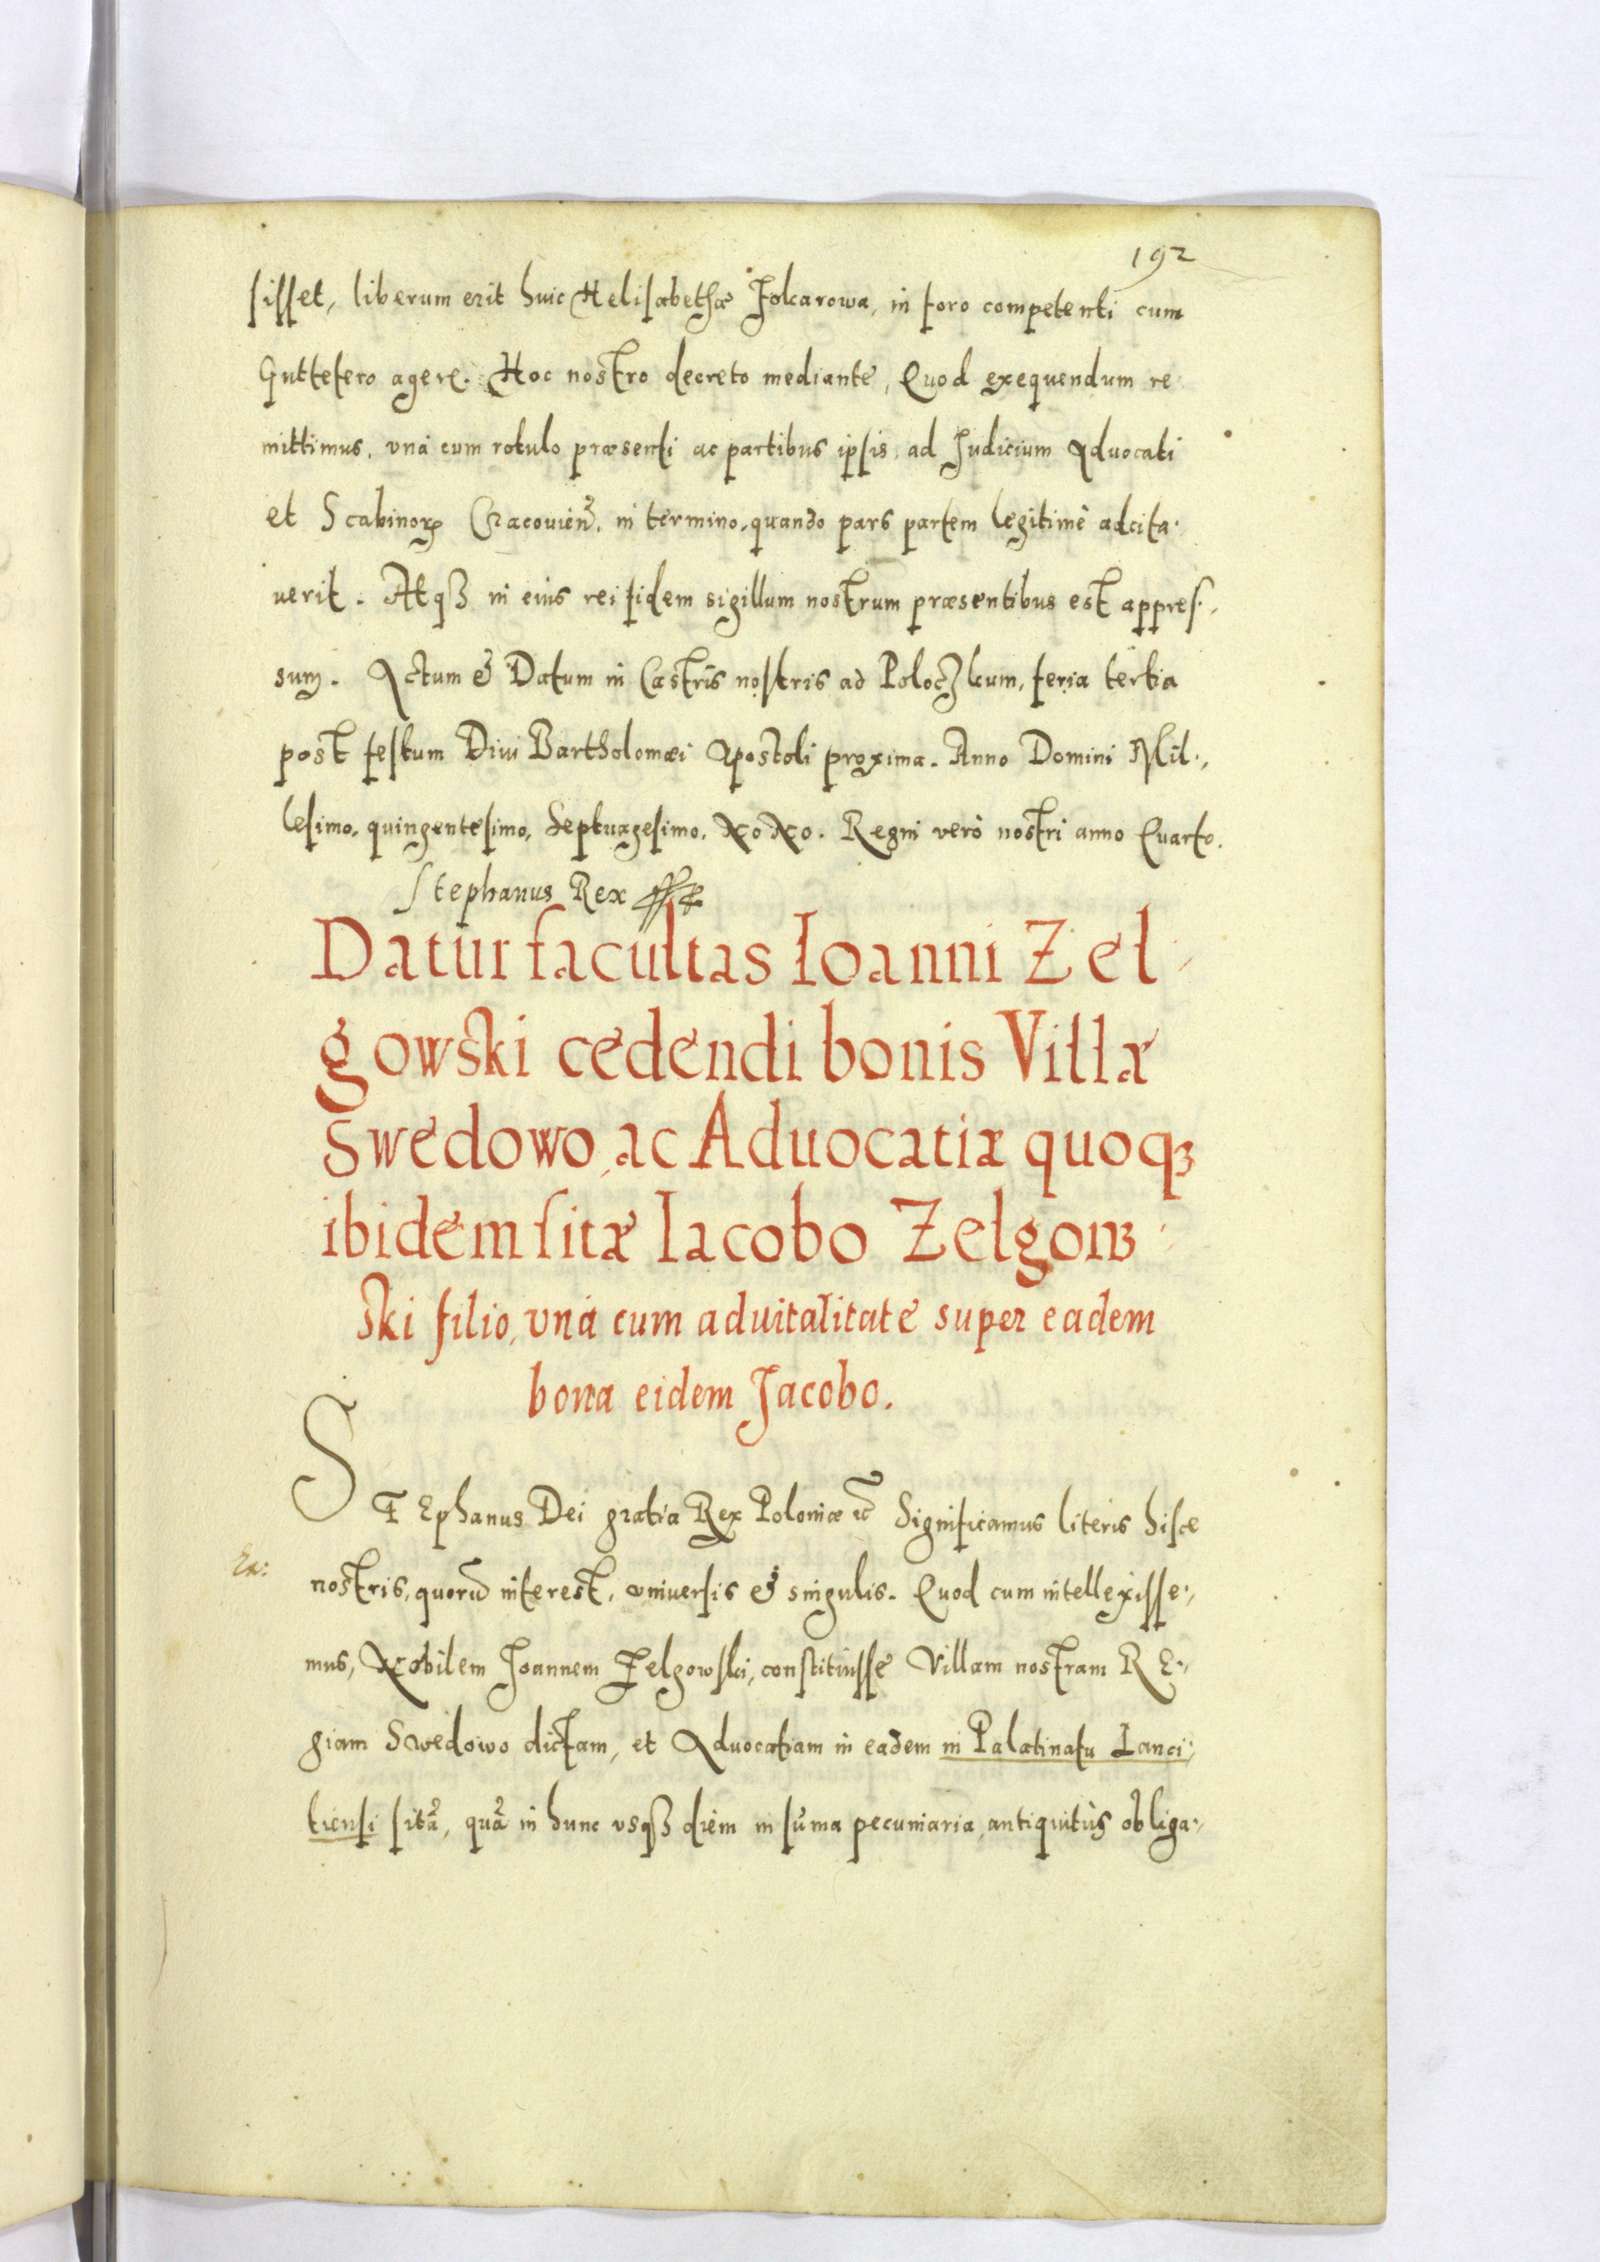 192
sisset, liberum erit huic Helisabethæ Folcarowa, in foro competenti cum
Guttetero agere. Hoc nostro decreto mediante, Quod exequendum re
mittimus, vnà cum rotulo præsenti ac partibus ipsis, ad Judicium Aduocati
et Scabinorꝝ Cracouieñ. in termino, quando pars partem legitimè adcita-
uerit. Atqꝫ in eius rei fidem sigillum nostrum præsentibus est appres-
sum. Actum & Datum in Castris nostris ad Poloczkum, feria tertia
post festum Diui Bartholomæi Apostoli proxima. Anno Domini Mil-
lesimo, quingentesimo, Septuagesimo, Nono. Regni verò nostri anno Quarto.
Stephanus Rex
Datur facultas Ioanni Zel-
gowski cedendi bonis Villæ
Swedowo, ac Aduocatiæ quoqꝫ
ibidem sitæ Iacobo Zelgow-
ski filio, vnà cum aduitalitate super eadem
bona eidem Jacobo.
STEphanus Dei gratia Rex Poloniæ etc̃ Significamus literis hisce
nostris, quorũ interest, vniuersis & singulis. Quod cum intellexisse-
mus, Nobilem Joannem Zelgowski, constituisse Villam nostram RE-
giam Swedowo dictam, et Aduocatiam in eadem in Palatinatu Lanci-
tiensi sitã, quã in hunc vsqꝫ diem in sũma pecuniaria, antiquitùs obliga-